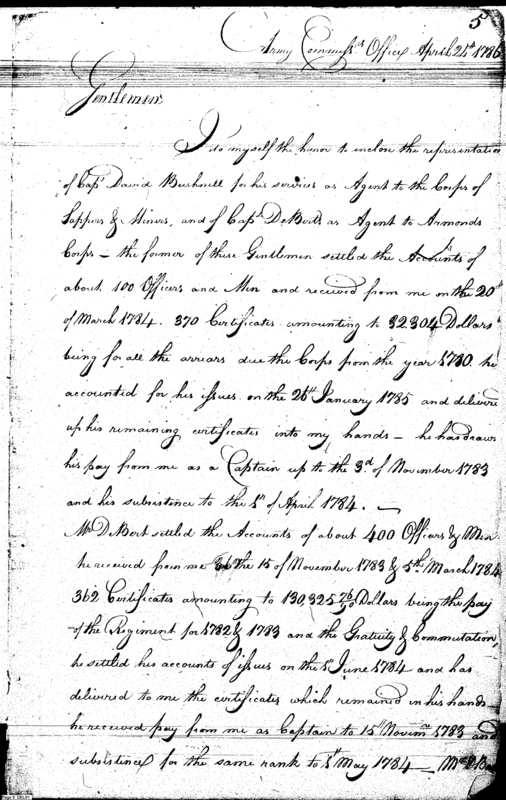 5
Army Commiss.rs Office April 24th 1786
Gentlemen
I do myself the honor to inclose the representation
of Capt David Bushnell for his services as Agent to the Corps of
Sappers & Miners, and of Capt. DeBert as Agent to Armonds
Corps – the former of these Gentlemen settled the Accounts of
about 100 Officers and Men and received from me on the 20th
of March 1784. 370 Certificates amounting to 32304 Dollars
being for all the arrears due the Corps from the year 1780 he
accounted for his issues on the 26th January 1785 and delivered
up his remaining certificates into my hands – he has drawn
his pay from me as a Captain up to the 3d. of November 1783
and his subsistence to the 1st of April 1784. –
Mr DeBert settled the Accounts of about 400 Officers & Men
he received from me the 15 of November 1783 & 5th March 1784
362 Certificates amounting to 130,325 76/90 Dollars being the pay
of the Regiment for 1782 & 1783 and the Gratuity & Commutation,
he settled his accounts of issues on the 1st June 1784 and has
delivered to me the certificates which remained in his hands
he received pay from me as Captain to 15th Novemr 1783 and
subsistence for the same rank to 1st May 1784 – Mr